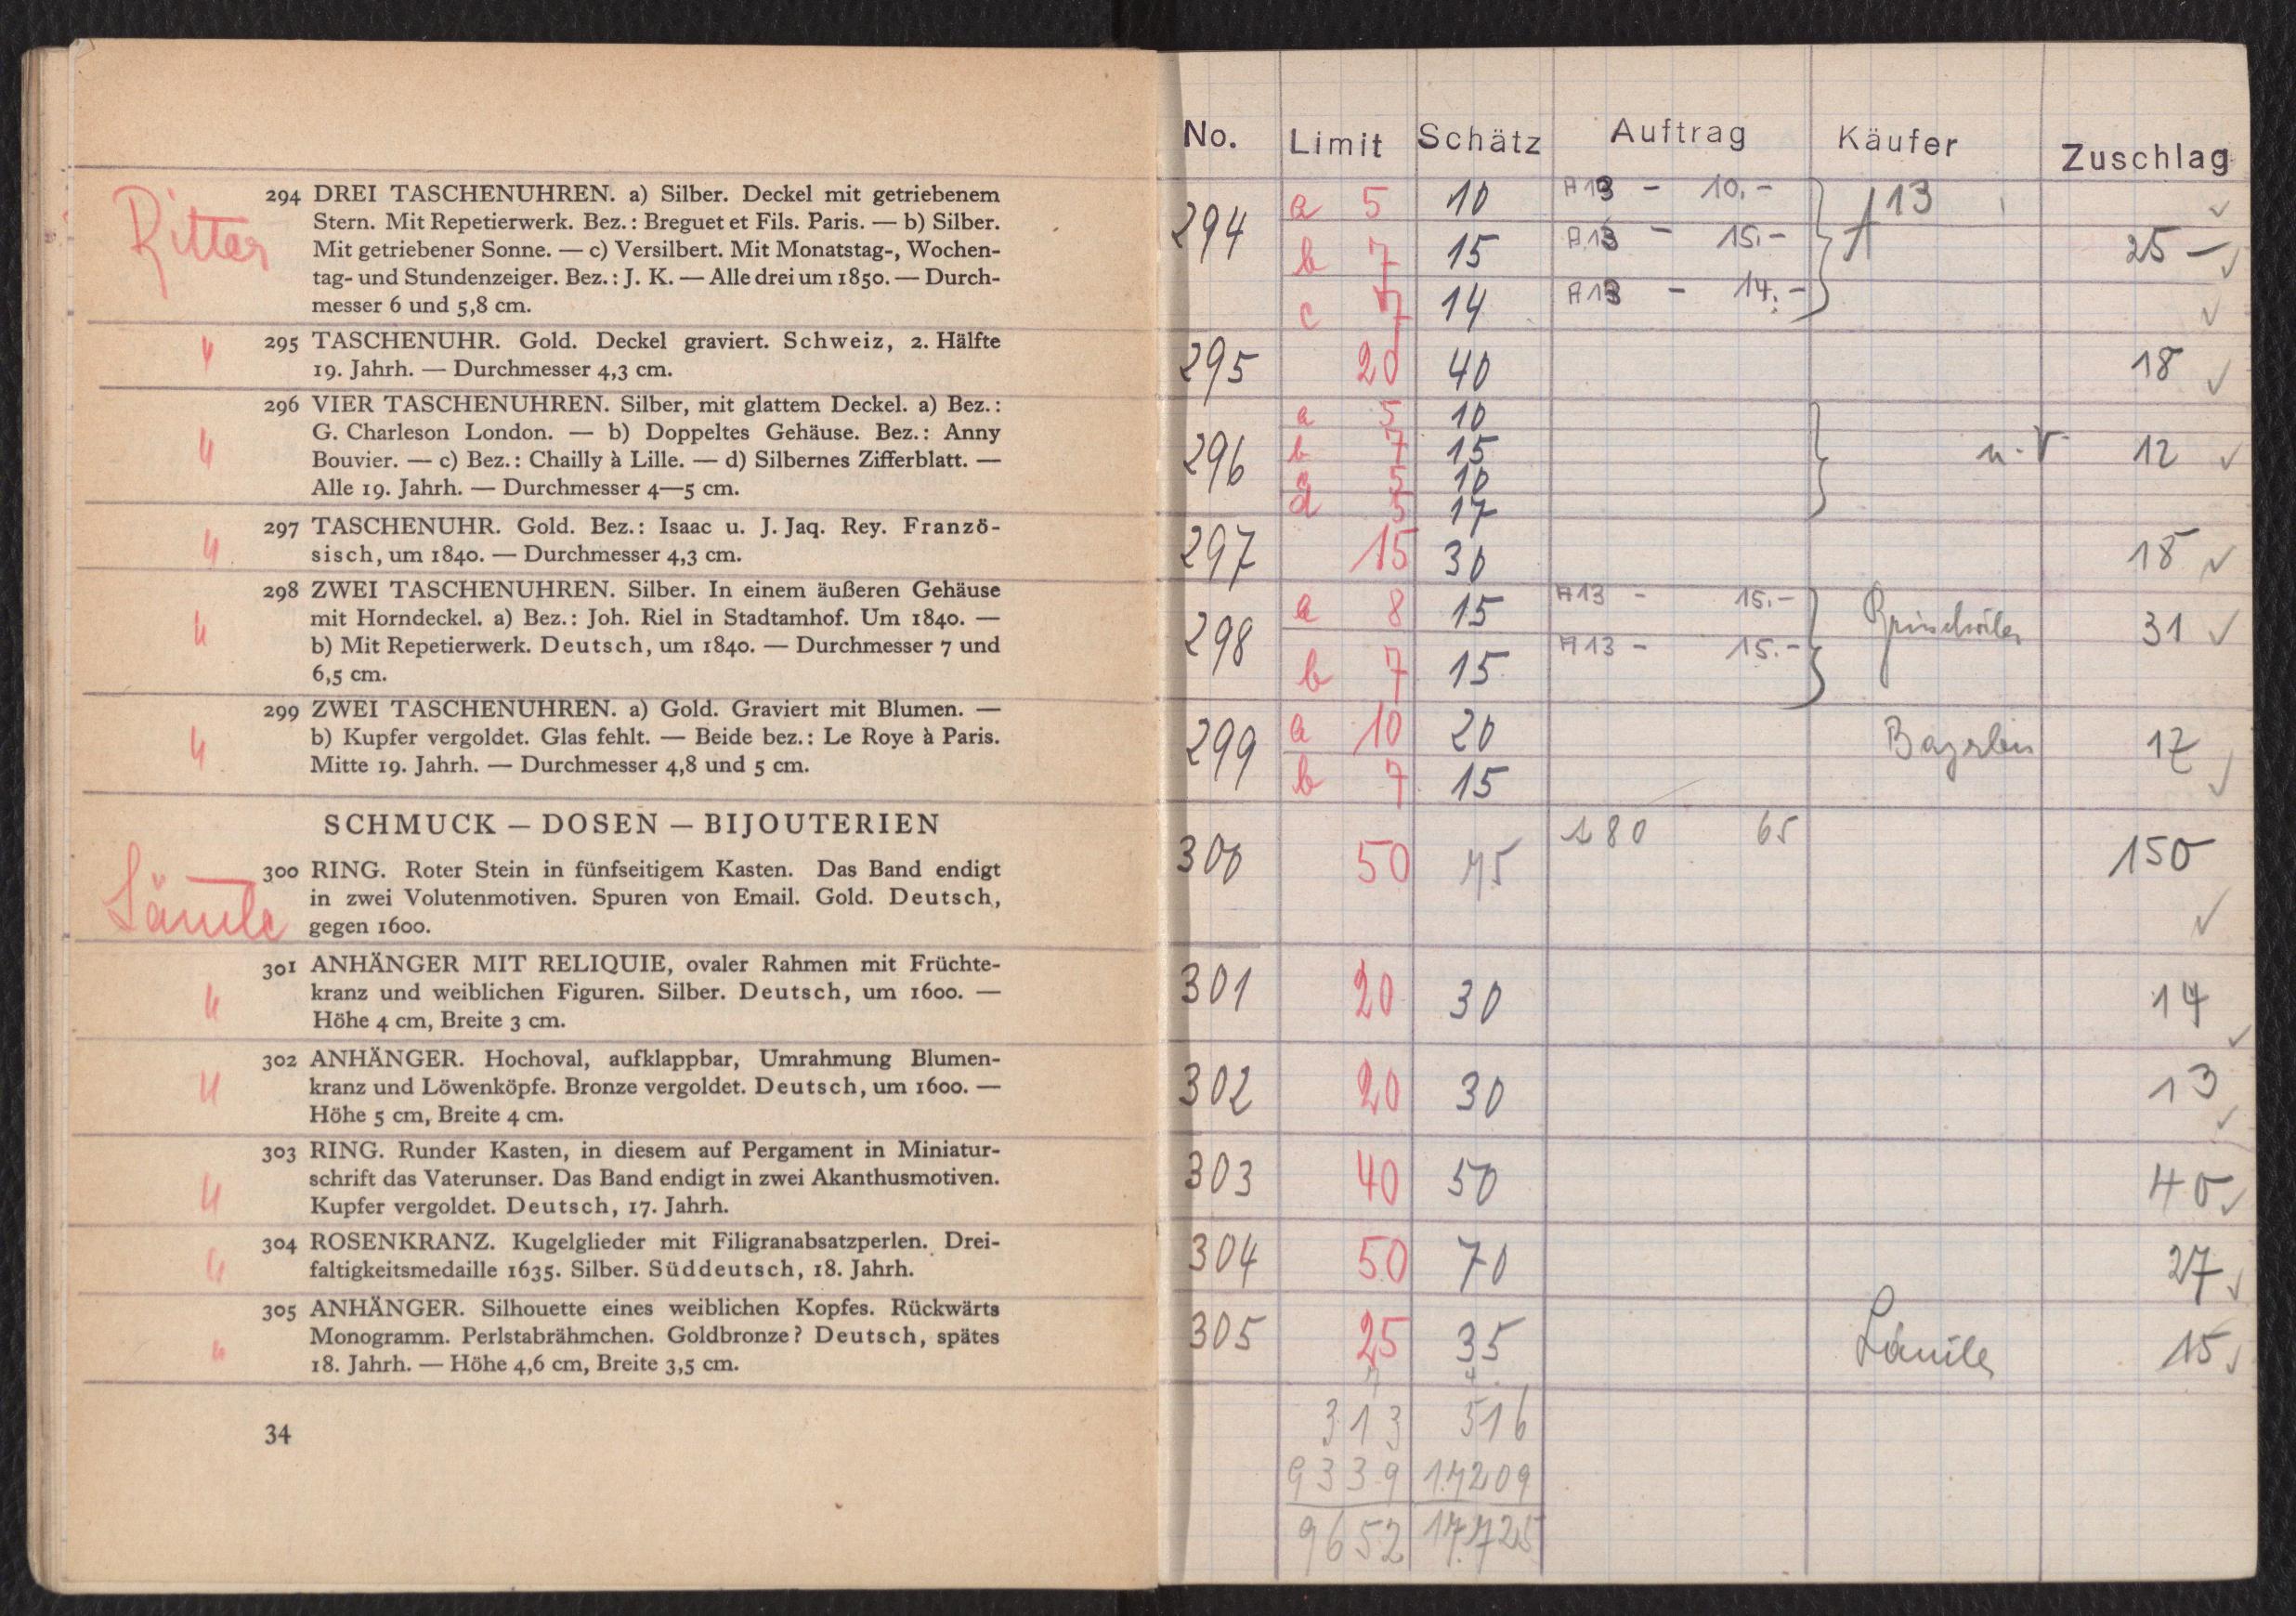 Ritter
294 DREI TASCHENUHREN. a) Silber. Deckel mit getriebenem
Stern. Mit Repetierwerk. Bez.: Breguet et Fils. Paris. — b) Silber.
Mit getriebener Sonne. — c) Versilbert. Mit Monatstag-, Wochen-
tag- und Stundenzeiger. Bez.: J. K. — Alle drei um 1850. — Durch-
messer 6 und 5,8 cm.
" 295 TASCHENUHR. Gold. Deckel graviert. Schweiz, 2. Hälfte
19. Jahrh. — Durchmesser 4,3 cm.
296 VIER TASCHENUHREN. Silber, mit glattem Deckel. a) Bez.:
G. Charleson London. — b) Doppeltes Gehäuse. Bez.: Anny
" Bouvier. — c) Bez.: Chailly à Lille. — d) Silbernes Zifferblatt. —
Alle 19. Jahrh. — Durchmesser 4—5 cm.
297 TASCHENUHR. Gold. Bez.: Isaac u. J. Jaq. Rey. Franzö-
" sisch, um 1840. — Durchmesser 4,3 cm.
298 ZWEI TASCHENUHREN. Silber. In einem äußeren Gehäuse
" mit Horndeckel. a) Bez.: Joh. Riel in Stadtamhof. Um 1840. —
b) Mit Repetierwerk. Deutsch, um 1840. — Durchmesser 7 und
6,5 cm.
299 ZWEI TASCHENUHREN. a) Gold. Graviert mit Blumen. —
" b) Kupfer vergoldet. Glas fehlt. — Beide bez.: Le Roye à Paris.
Mitte 19. Jahrh. — Durchmesser 4,8 und 5 cm.
SCHMUCK – DOSEN – BIJOUTERIEN
Lämle
300 RING. Roter Stein in fünfseitigem Kasten. Das Band endigt
in zwei Volutenmotiven. Spuren von Email. Gold. Deutsch,
gegen 1600.
301 ANHÄNGER MIT RELIQUIE, ovaler Rahmen mit Früchte-
" kranz und weiblichen Figuren. Silber. Deutsch, um 1600. —
Höhe 4 cm, Breite 3 cm.
302 ANHÄNGER. Hochoval, aufklappbar, Umrahmung Blumen-
" kranz und Löwenköpfe. Bronze vergoldet. Deutsch, um 1600. —
Höhe 5 cm, Breite 4 cm.
303 RING. Runder Kasten, in diesem auf Pergament in Miniatur-
" schrift das Vaterunser. Das Band endigt in zwei Akanthusmotiven.
Kupfer vergoldet. Deutsch, 17. Jahrh.
304 ROSENKRANZ. Kugelglieder mit Filigranabsatzperlen. Drei-
" faltigkeitsmedaille 1635. Silber. Süddeutsch, 18. Jahrh.
305 ANHÄNGER. Silhouette eines weiblichen Kopfes. Rückwärts
" Monogramm. Perlstabrähmchen. Goldbronze? Deutsch, spätes
18. Jahrh. — Höhe 4,6 cm, Breite 3,5 cm.
34
No. Limit Schätz Auftrag Käufer Zuschlag
294 a 5 10 A13 – 10.– A13 ✓
b 7 15 A13 – 15.– 25 – ✓
c 7 14 A13 – 14.– ✓
295 20 40 18 ✓
296 a 5 10
b 7 15 n.V 12 ✓
c 5 10
d 5 17
297 15 30 18 ✓
298 a 8 15 A13 – 15.– 31 ✓
b 7 15 A13 – 15.–
299 a 10 20 17 ✓
b 7 15
300 50 75 180 65 150 ✓
301 20 30 14 ✓
302 20 30 13 ✓
303 40 50 40 ✓
304 50 70 27 ✓
305 25 35 Lämle 15 ✓
313 516
9339 17209
9652 17.725